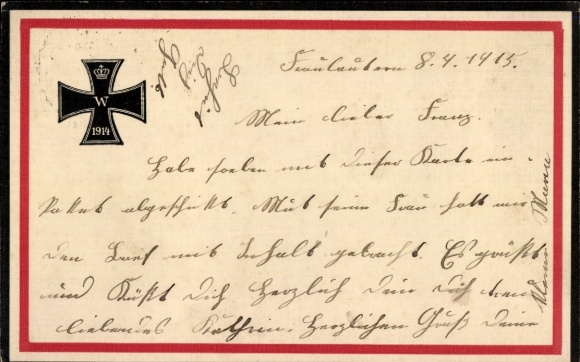 Fraulautern 8.4.1915.
Mein lieber Franz.
Habe soeben mit dieser Karte ein
Paket abgeschikt. seine Frau hatt mir
den Brief mit Inhalt gebracht. Es grüßt
und Küßt Dich Herzlich Dein Dich
liebendes Kathrin. Herzlichen Gruß Deine
W
1914